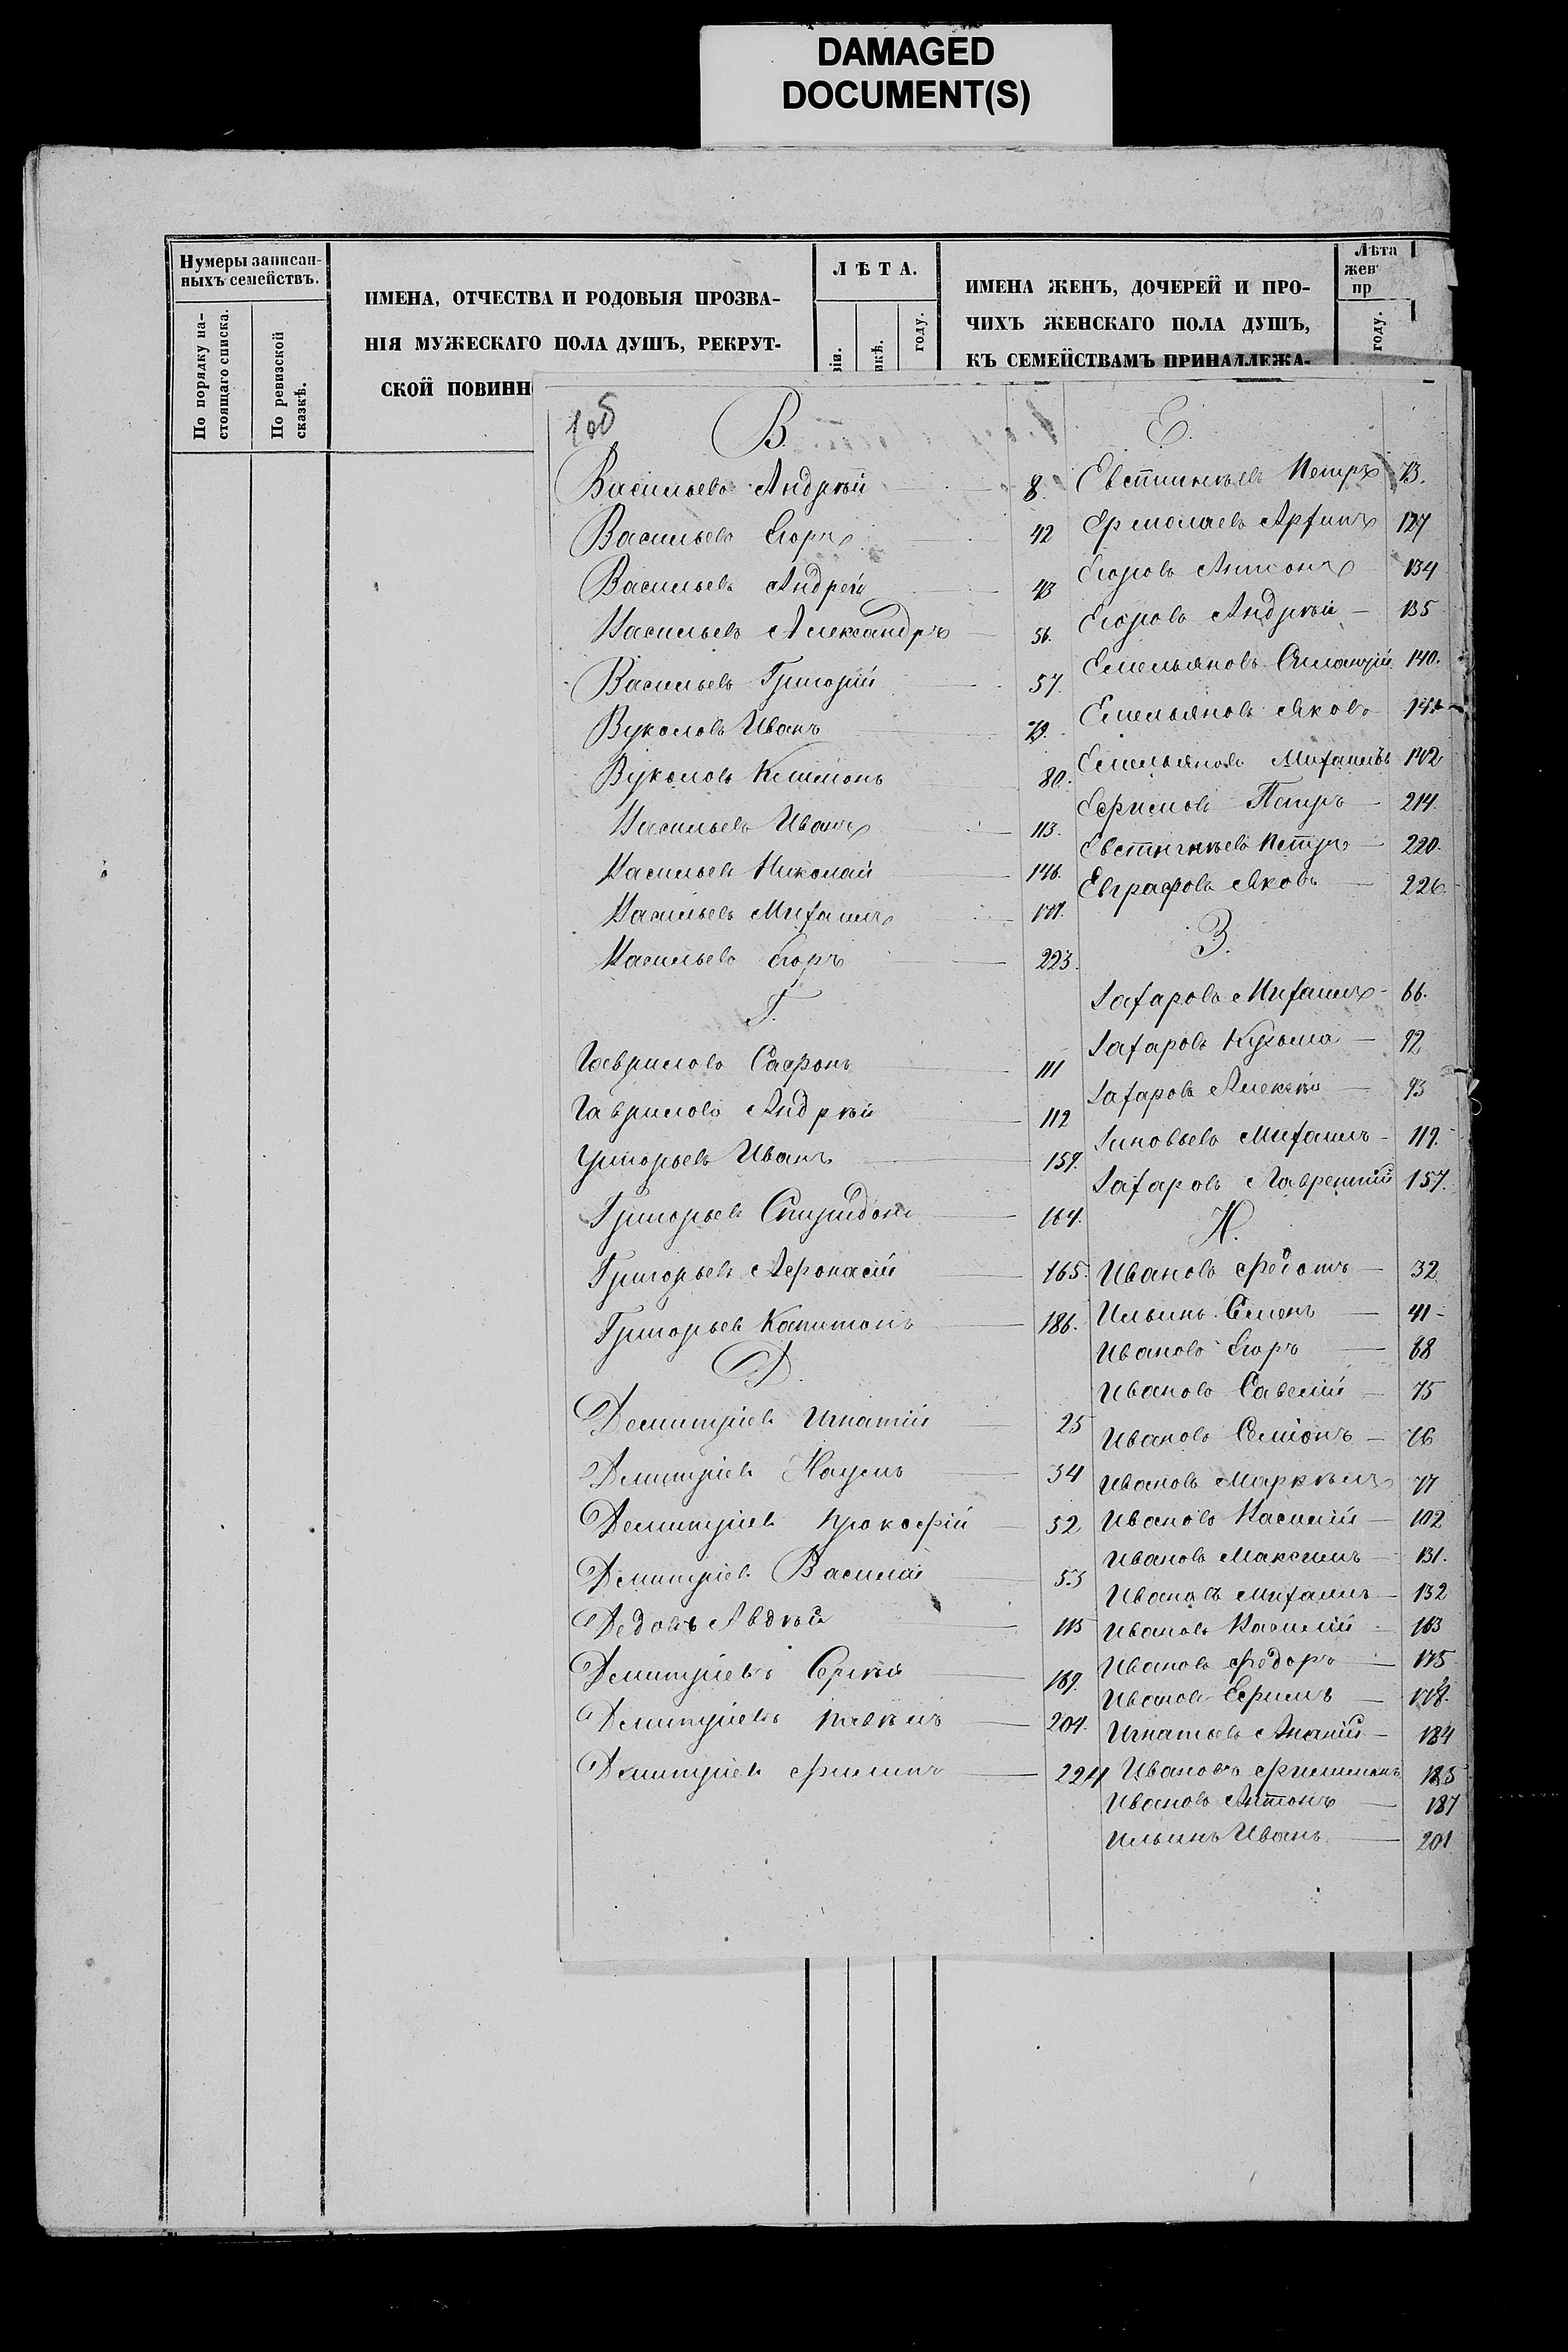 DAMAGED
DOCUMENT(S)
Нумеры записан-
ныхъ семействъ.
По порядку на-
стоящаго списка.
По ревизской
сказкѣ.
ИМЕНА, ОТЧЕСТВА И РОДОВЫЯ ПРОЗВА-
НІЯ МУЖЕСКАГО ПОЛА ДУШЪ, РЕКРУТ-
СКОЙ ПОВИНН
ЛѢТА.
зіи.
икѣ.
году.
ИМЕНА ЖЕНЪ, ДОЧЕРЕЙ И ПРО-
ЧИХЪ ЖЕНСКАГО ПОЛА ДУШЪ,
КЪ СЕМЕЙСТВАМЪ ПРИНАДЛЕЖА-
Лѣта
жен
пр
году.
1об
В.
Васильевъ Андрѣй 8.
Васильевъ Егоръ 42
Васильевъ Андрей 43
Васильевъ Александръ 56.
Васильевъ Григорій 57.
Вуколовъ Иванъ 79.
Вуколовъ Климонъ 80.
Васильевъ Иванъ 113.
Васильевъ Николай 146.
Васильевъ Михаилъ
Васильевъ Егоръ 223.
Г.
Гавриловъ Сафронъ 111
Гавриловъ Андрѣй 112
Григорьевъ Иванъ 159.
Григорьевъ Спиридонъ 164.
Григорьевъ Афонасій 165.
Григорьевъ Капитонъ 186.
Д.
Демитріевъ Игнатій 25
Демитріевъ Наумъ 34
Демитріевъ Прокофій 52
Демитріевъ Василій 53
Дедовъ Авдѣй 115
Демитріевъ Сергѣй 189.
Демитріевъ Павелъ 204.
Демитріевъ Филипъ 224
Е.
Евстигнѣевъ Петръ 73.
Ермолаевъ Архипъ 127
Егоровъ Антонъ 134
Егоровъ Андрѣй 135
Емельяновъ 140.
Емельяновъ Яковъ 141
Емельяновъ Михаилъ 142
Ефимовъ Петръ 214.
Евстигнѣевъ Петръ 220.
Евграфовъ Яковъ 226.
З.
Захаровъ Михаилъ 66.
Захаровъ Кузьма 92
Захаровъ Алексѣй 93
Зиновьевъ Михаилъ 119.
Захаровъ Лаврентій 157.
И.
Ивановъ Федотъ 32
Ильинъ Семенъ 41
Ивановъ Егоръ 68
Ивановъ Савелій 75
Ивановъ Семіонъ 76
Ивановъ Маркѣлъ 77
Ивановъ Василій 102
Ивановъ Максимъ 131.
Ивановъ Михаилъ 132
Ивановъ Василій 163
Ивановъ Федоръ 175
Ивановъ Ефимъ 178.
Игнатьевъ Ананій 184
Ивановъ Филимонъ 185
Ивановъ Антонъ 187
Ильинъ Иванъ 201